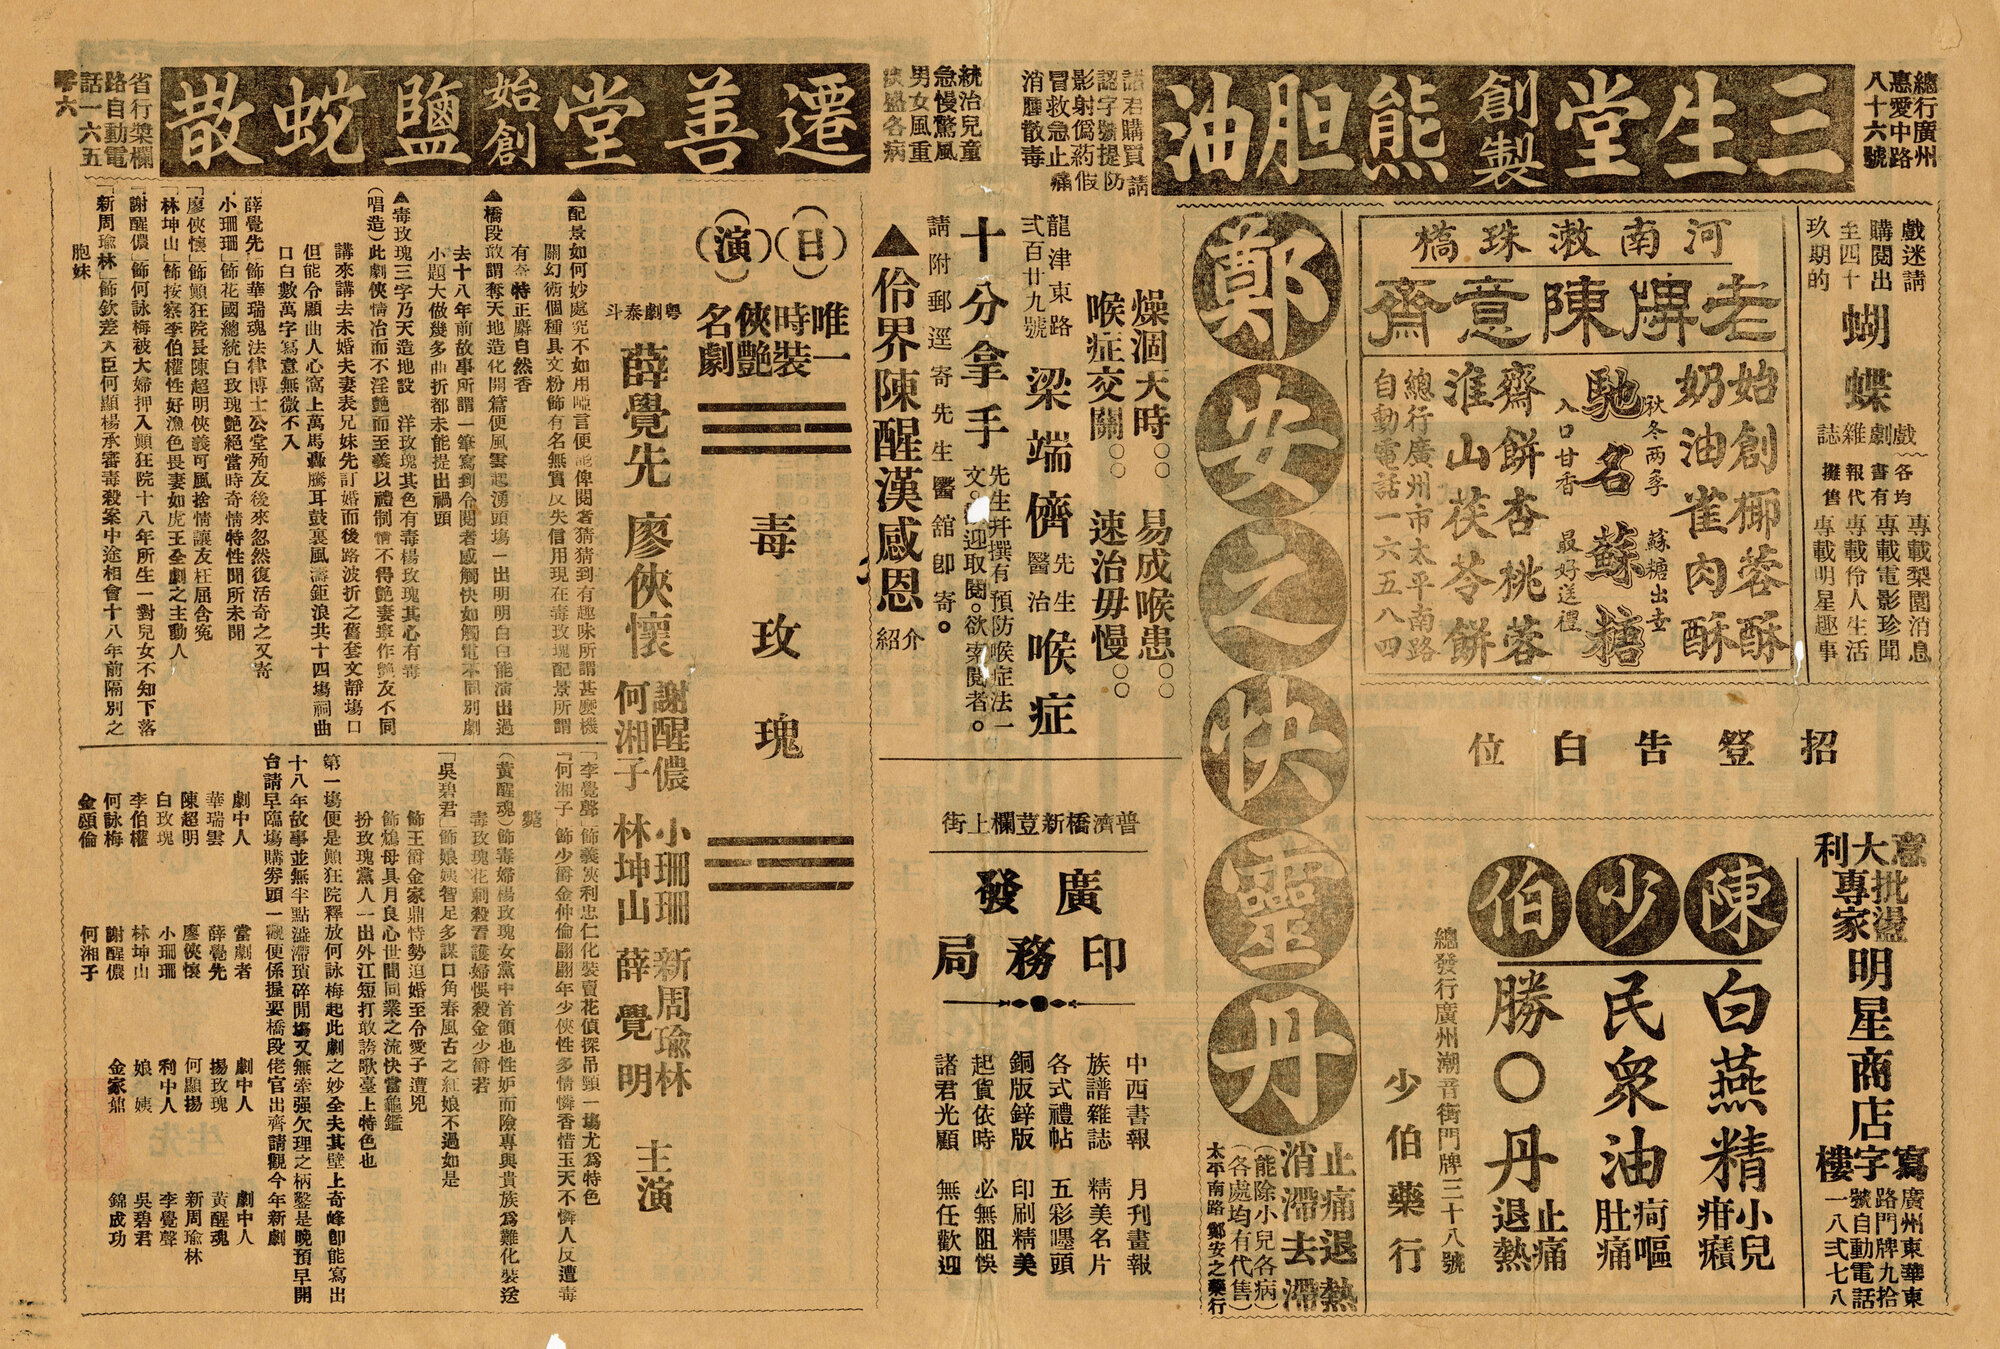 總行廣州
惠愛中路
八十六號
三生堂創製熊胆油
諸君購買請
認字號提防
影射僞药假
冒救急止痛
消腫散毒
統治兒童
急慢驚風
男女風重
痰盛各病
遷善堂始創鹽蛇散
省行槳欄
路自動電
話一六五
零六
戲迷請
購閱出
至四十
玖期的
蝴蝶
戲劇雜誌
各均
書有
報代
攤售
專載梨園消息
專載電影珍聞
專載伶人生活
專載明星趣事
河南漱珠橋
老牌陳意齋
始創椰蓉酥
奶油雀肉酥
秋冬兩季 蘇糖出世
馳名蘇糖
入口甘香 最好送禮
齋餅杏桃蓉
淮山茯苓餅
總行廣州市太平南路
自動電話一六五八四
招登告白位
意大利批盪專家
明星商店
寫字樓
廣州東華東
路門牌九拾
號自動電話
一八弍七八
陳少伯
白燕精
小兒
疳癪
民眾油
疴嘔
肚痛
勝〇丹
止痛
退熱
總發行廣州潮音街門牌三十八號
少伯藥行
鄭安之快靈丹
止痛退熱
消滯去滯
(能除小兒各病)
(各處均有代售)
太平南路 鄭安之藥行
燥涸天時○○ 易成喉患○○
喉症交關○○ 速治毋慢○○
龍津東路
弍百廿九號
梁端儕
先生
醫治
喉症
十分拿手
先生幷撰有預防喉症法一
請附郵逕寄先生醫舘卽寄。
▲伶界陳醒漢感恩
介紹
普濟橋新荳欄上街
廣發
印務局
中西書報 月刊畫報
族譜雜誌 精美名片
各式禮帖 五彩嘜頭
銅版鋅版 印刷精美
起貨依時 必無阻悞
諸君光顧 無任歡迎
(日)(演)
唯一
時裝
俠艷
名劇
毒玫瑰
粵劇泰斗
薛覺先 廖俠懷
謝醒儂 小珊珊 新周瑜林
何湘子 林坤山 薛覺明
主演
▲配景如何妙處究不如用啞言便能俾閱者猜猜到有趣味所謂甚麽機
關幻術個種具文粉飾有名無實反失信用現在毒玫瑰配景所謂
有奇特正麝自然香
▲橋段敢謂奪天地造化開篇便風雲起湧頭塲一出明明白白能演出過
去十八年前故事所謂一筆寫到令閱者感觸快如觸電不同別劇
小題大做幾多曲折都未能提出禍頭
▲毒玫瑰三字乃天造地設 洋玫瑰其色有毒楊玫瑰其心有毒
(唱造)此劇俠情冶而不淫艷而至義以禮制情不得艷妻寧作艷友不同
講來講去未婚夫妻表兄妹先訂婚而後路波折之舊套文靜塲口
但能令顧曲人心窩上萬馬轟騰耳鼓裏風濤鉅浪共十四塲祠曲
口白數萬字寫意無微不入
「薛覺先」飾華瑞魂法律博士公堂殉友後來忽然復活奇之又奇
「小珊珊」飾花國總統白玫瑰艷絕當時奇情特性聞所未聞
「廖俠懷」飾顚狂院長陳超明俠義可風捨情讓友枉屈含寃
「林坤山」飾按察李伯權性好漁色畏妻如虎王全劇之主動人
「謝醒儂」飾何詠梅被大婦押入顚狂院十八年所生一對兒女不知下落
「新周瑜林」飾欽差大臣何顯楊承審毒殺案中途相會十八年前隔別之
胞妹
「李覺聲」飾義俠利忠仁化裝賣花偵探吊頸一塲尤爲特色
「何湘子」飾少爵金仲倫翩翩年少俠性多情憐香惜玉天不憐人反遭毒
斃
(黃醒魂)飾毒婦楊玫瑰女黨中首領也性妒而險專與貴族爲難化裝送
毒玫瑰花刺殺看護婦悞殺金少爵若
「吳碧君」飾娘姨智足多謀口角春風古之紅娘不過如是
飾王爵金家鼎恃勢迫婚至令愛子遭兇
飾鴇母具月良心世間同業之流快當龜鑑
扮玫瑰黨人一出外江短打敢誇歌臺上特色也
第一塲便是顚狂院釋放何詠梅起此劇之妙全夫其壁上奇峰卽能寫出
十八年故事並無半點溢滯瑣碎閒塲又無牽强欠理之柄鑿是晚預早開
台請早臨塲購劵頭一觀便係握要橋段佬官出齊請觀今年新劇
劇中人 當劇者 劇中人 劇中人
華瑞雲 薛覺先 揚玫瑰 黃醒魂
陳超明 廖俠懷 何顯揚 新周瑜林
白玫瑰 小珊珊 利中人 李覺聲
李伯權 林坤山 娘姨 吳碧君
何詠梅 謝醒儂 金家鼐 錦成功
金頌倫 何湘子